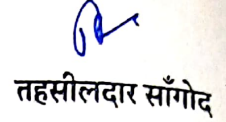 तहसीलदार साँगोद